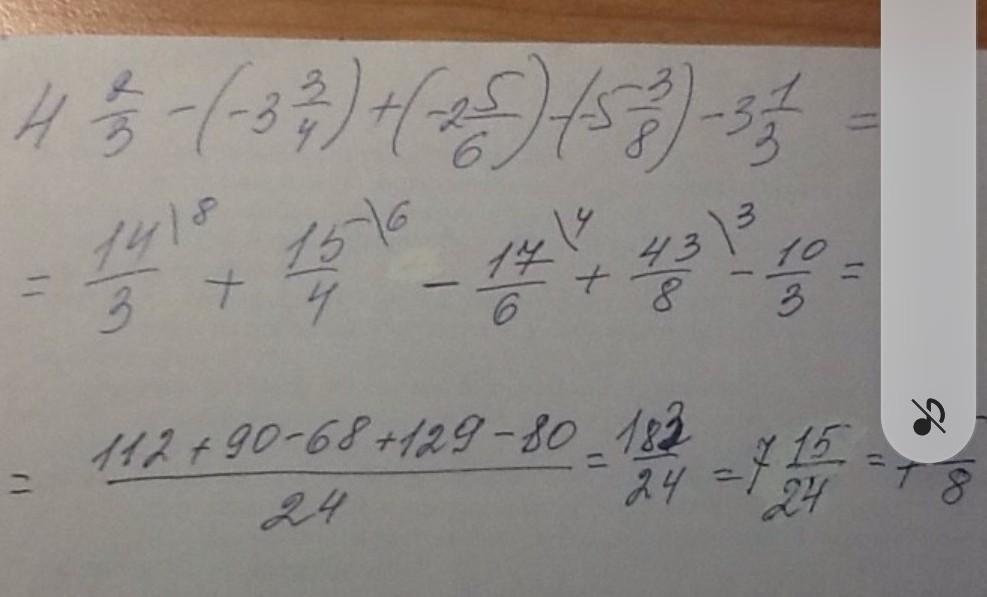 4 2/3 - (-3 3/4) + (-2 5/6) - (-5 3/8) - 3 1/3 =
= 14/3 \8 + 15/4 \6 - 17/6 \4 + 43/8 \3 - 10/3 =
= (112 + 90 - 68 + 129 - 80)/24 = 183/24 = 7 15/24 = 8